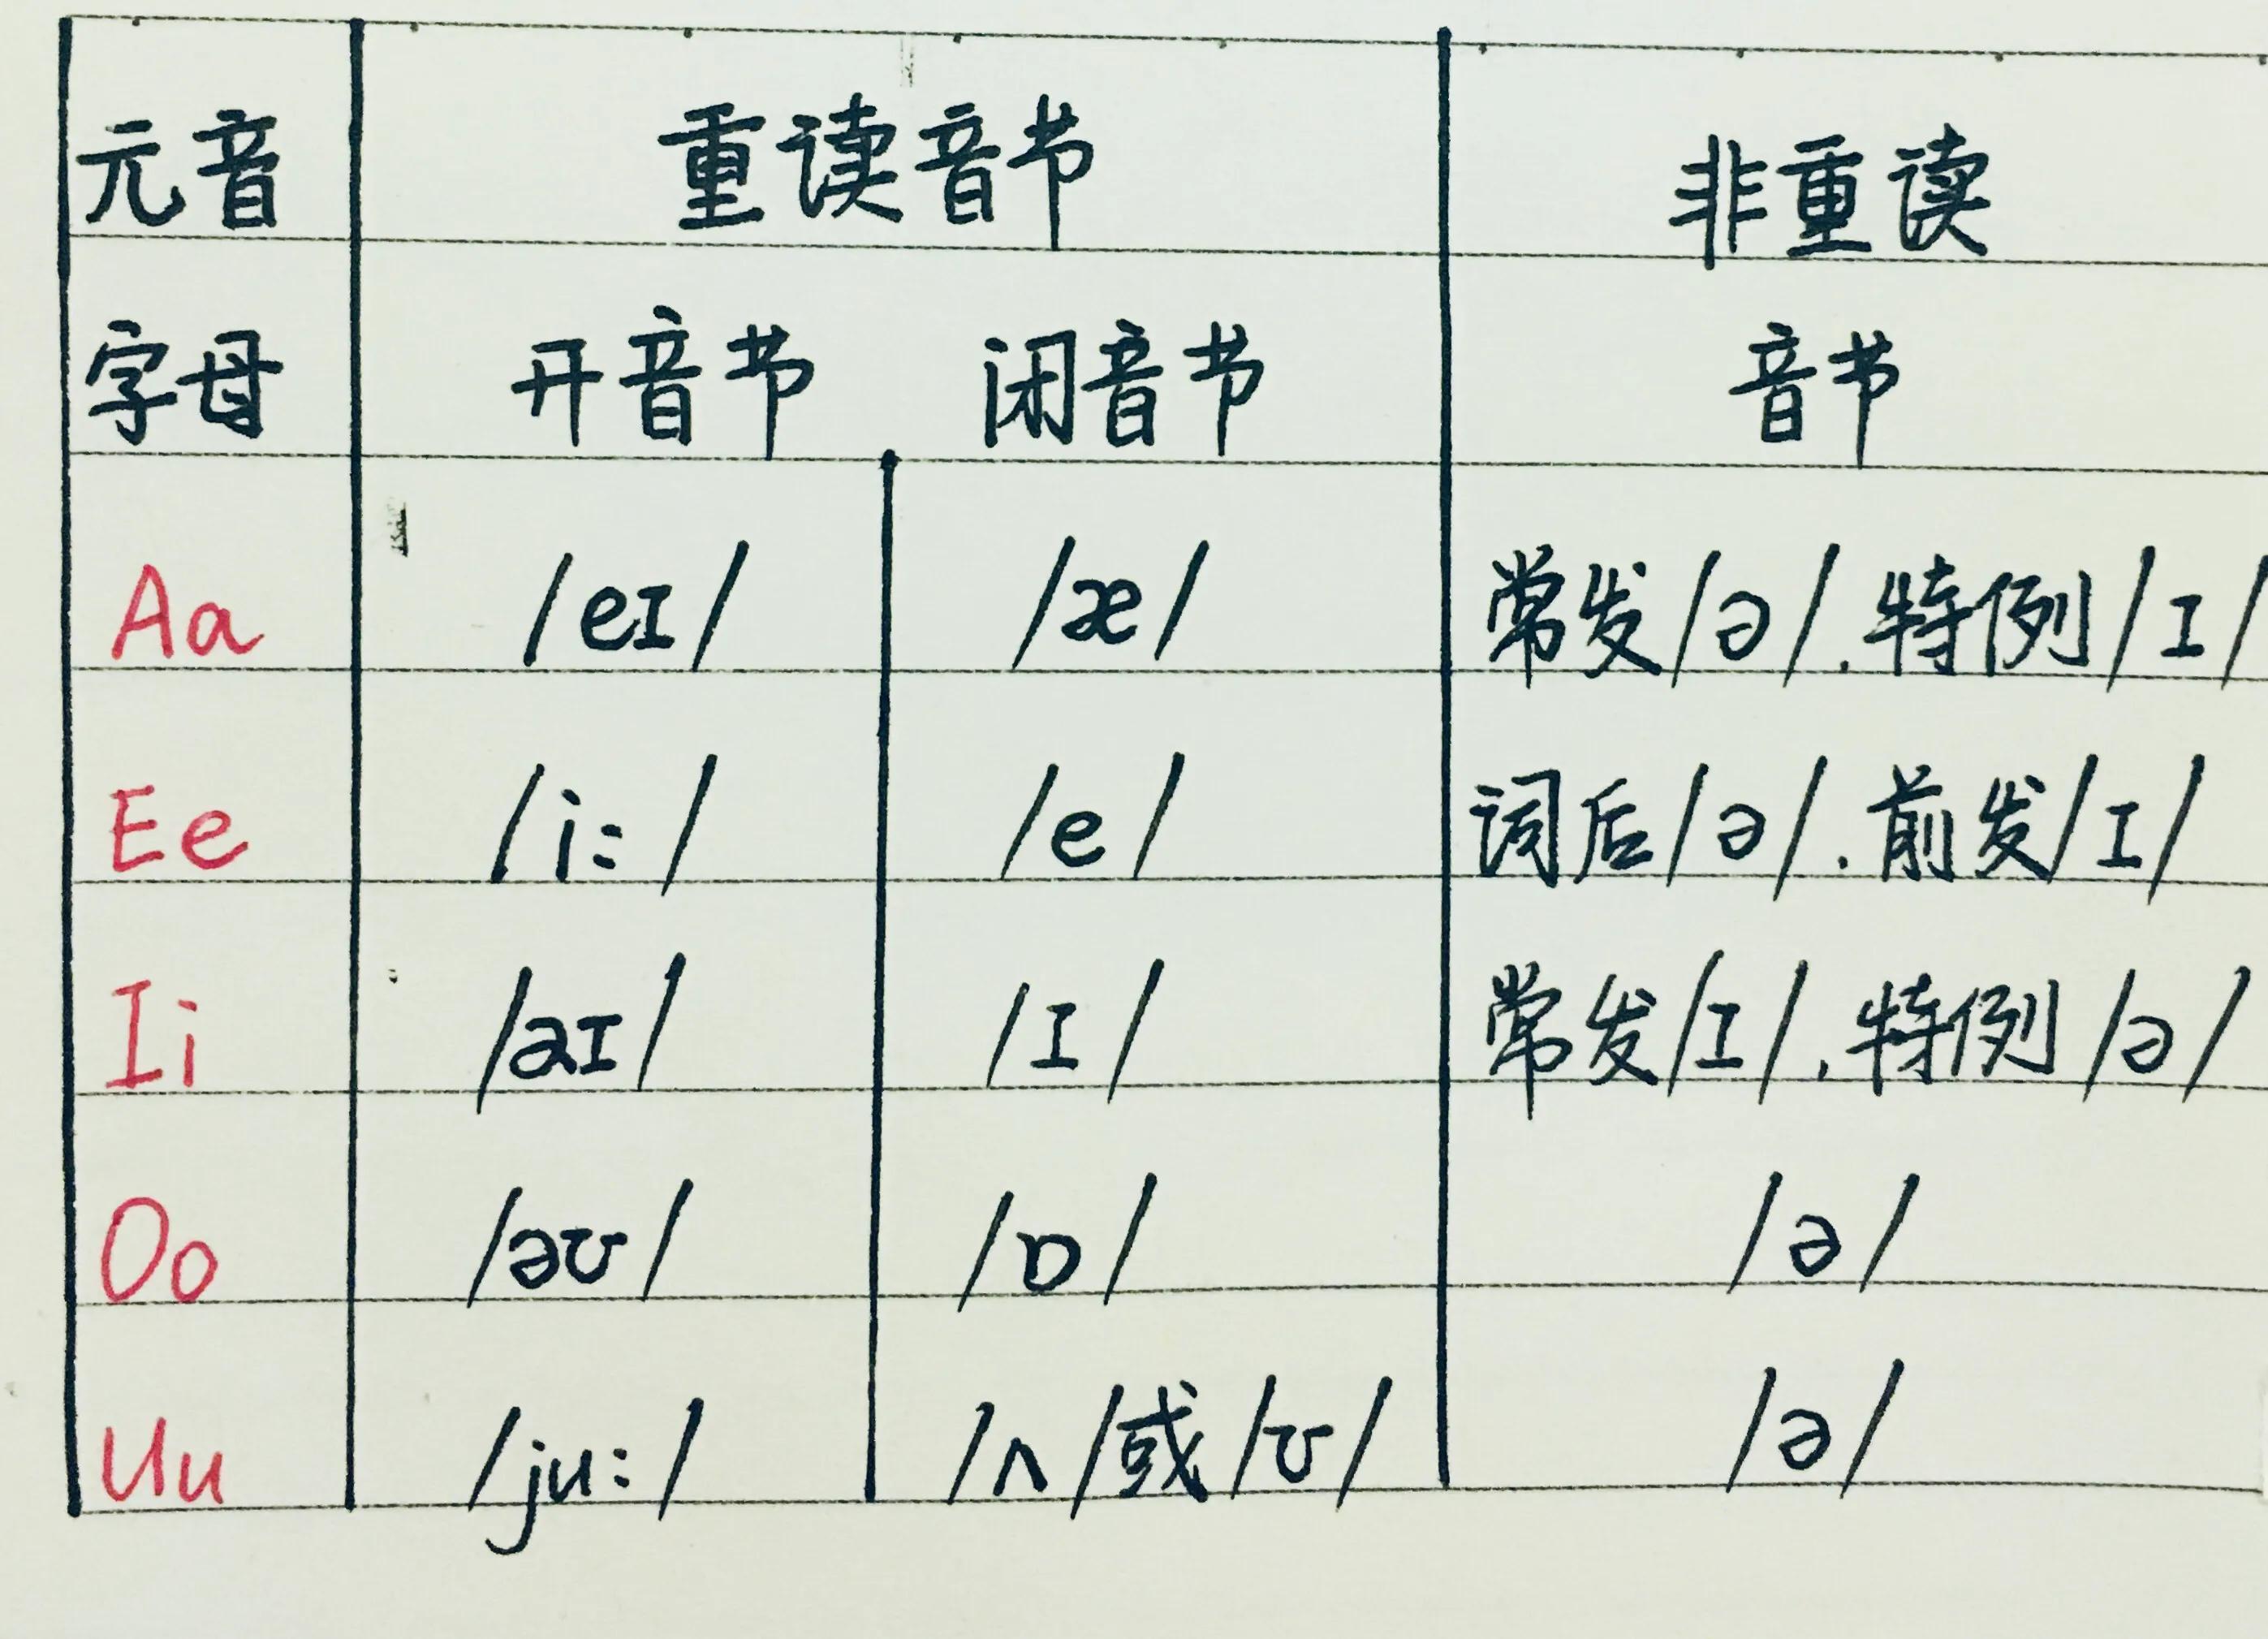 元音 重读音节 非重读
字母 开音节 闭音节 音节
Aa /eɪ/ /æ/ 常发/ə/.特例/ɪ/
Ee /i:/ /e/ 词后/ə/.前发/ɪ/
Ii /aɪ/ /ɪ/ 常发/ɪ/.特例/ə/
Oo /əʊ/ /ɒ/ /ə/
Uu /ju:/ /ʌ/或/ʊ/ /ə/